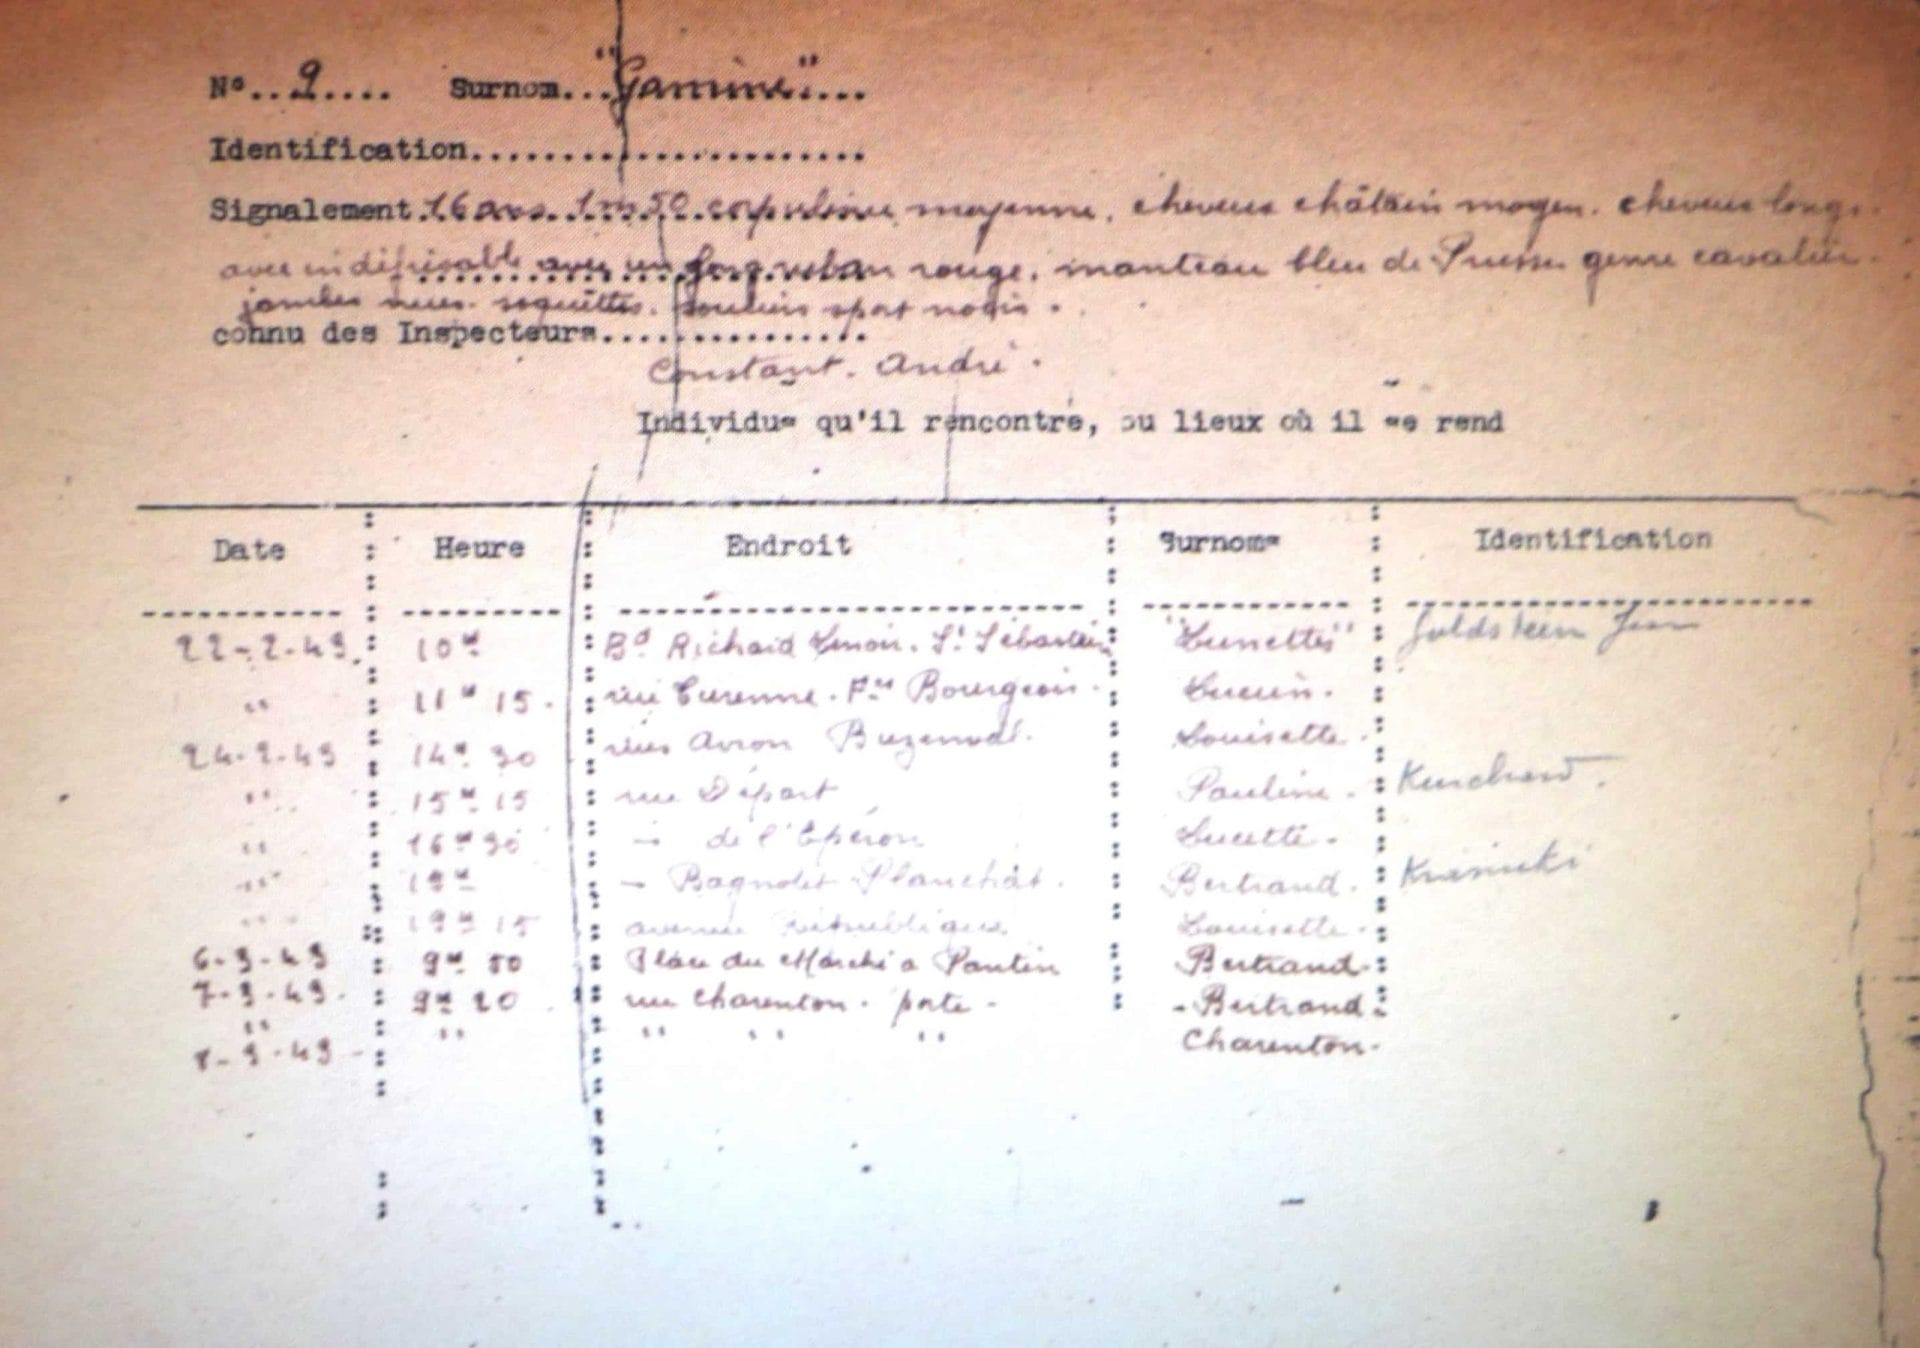 N°..9.... Surnom..."Gamine"...
Identification......................
Signalement. 16 ans. 1m50 corpulence moyenne. cheveux châtain moyen. cheveux longs.
avec indéfrisable avec un gros ruban rouge. manteau bleu de Prusse genre cavalier.
jambes nues. soquettes. souliers sport noirs.
connu des Inspecteurs...............
Constant. André.
Individus qu'il rencontre, ou lieux où il se rend
Date : Heure : Endroit : Surnoms : Identification
22-2-43. 10H Bd Richard Lenoir. St Sébastien "Lunettes" Goldsteen Jean
" 11H 15. rue Turenne. Fcs Bourgeois. Lucien.
24-2-43 14H 30 rues Avron Buzenval. Louisette.
" 15H 15 rue Départ Pauline.
" 16H 30 - de l'Eperon Lucette.
" 19H - Bagnolet Planchat. Bertrand. Krasucki
" 19H 15 avenue République. Louisette.
6-3-43 9H 50 Place du Marché a Pantin Bertrand.
7-3-43. 9H 20 rue Charenton. porte - - Bertrand
" " " " " Charenton.
8-3-43 -